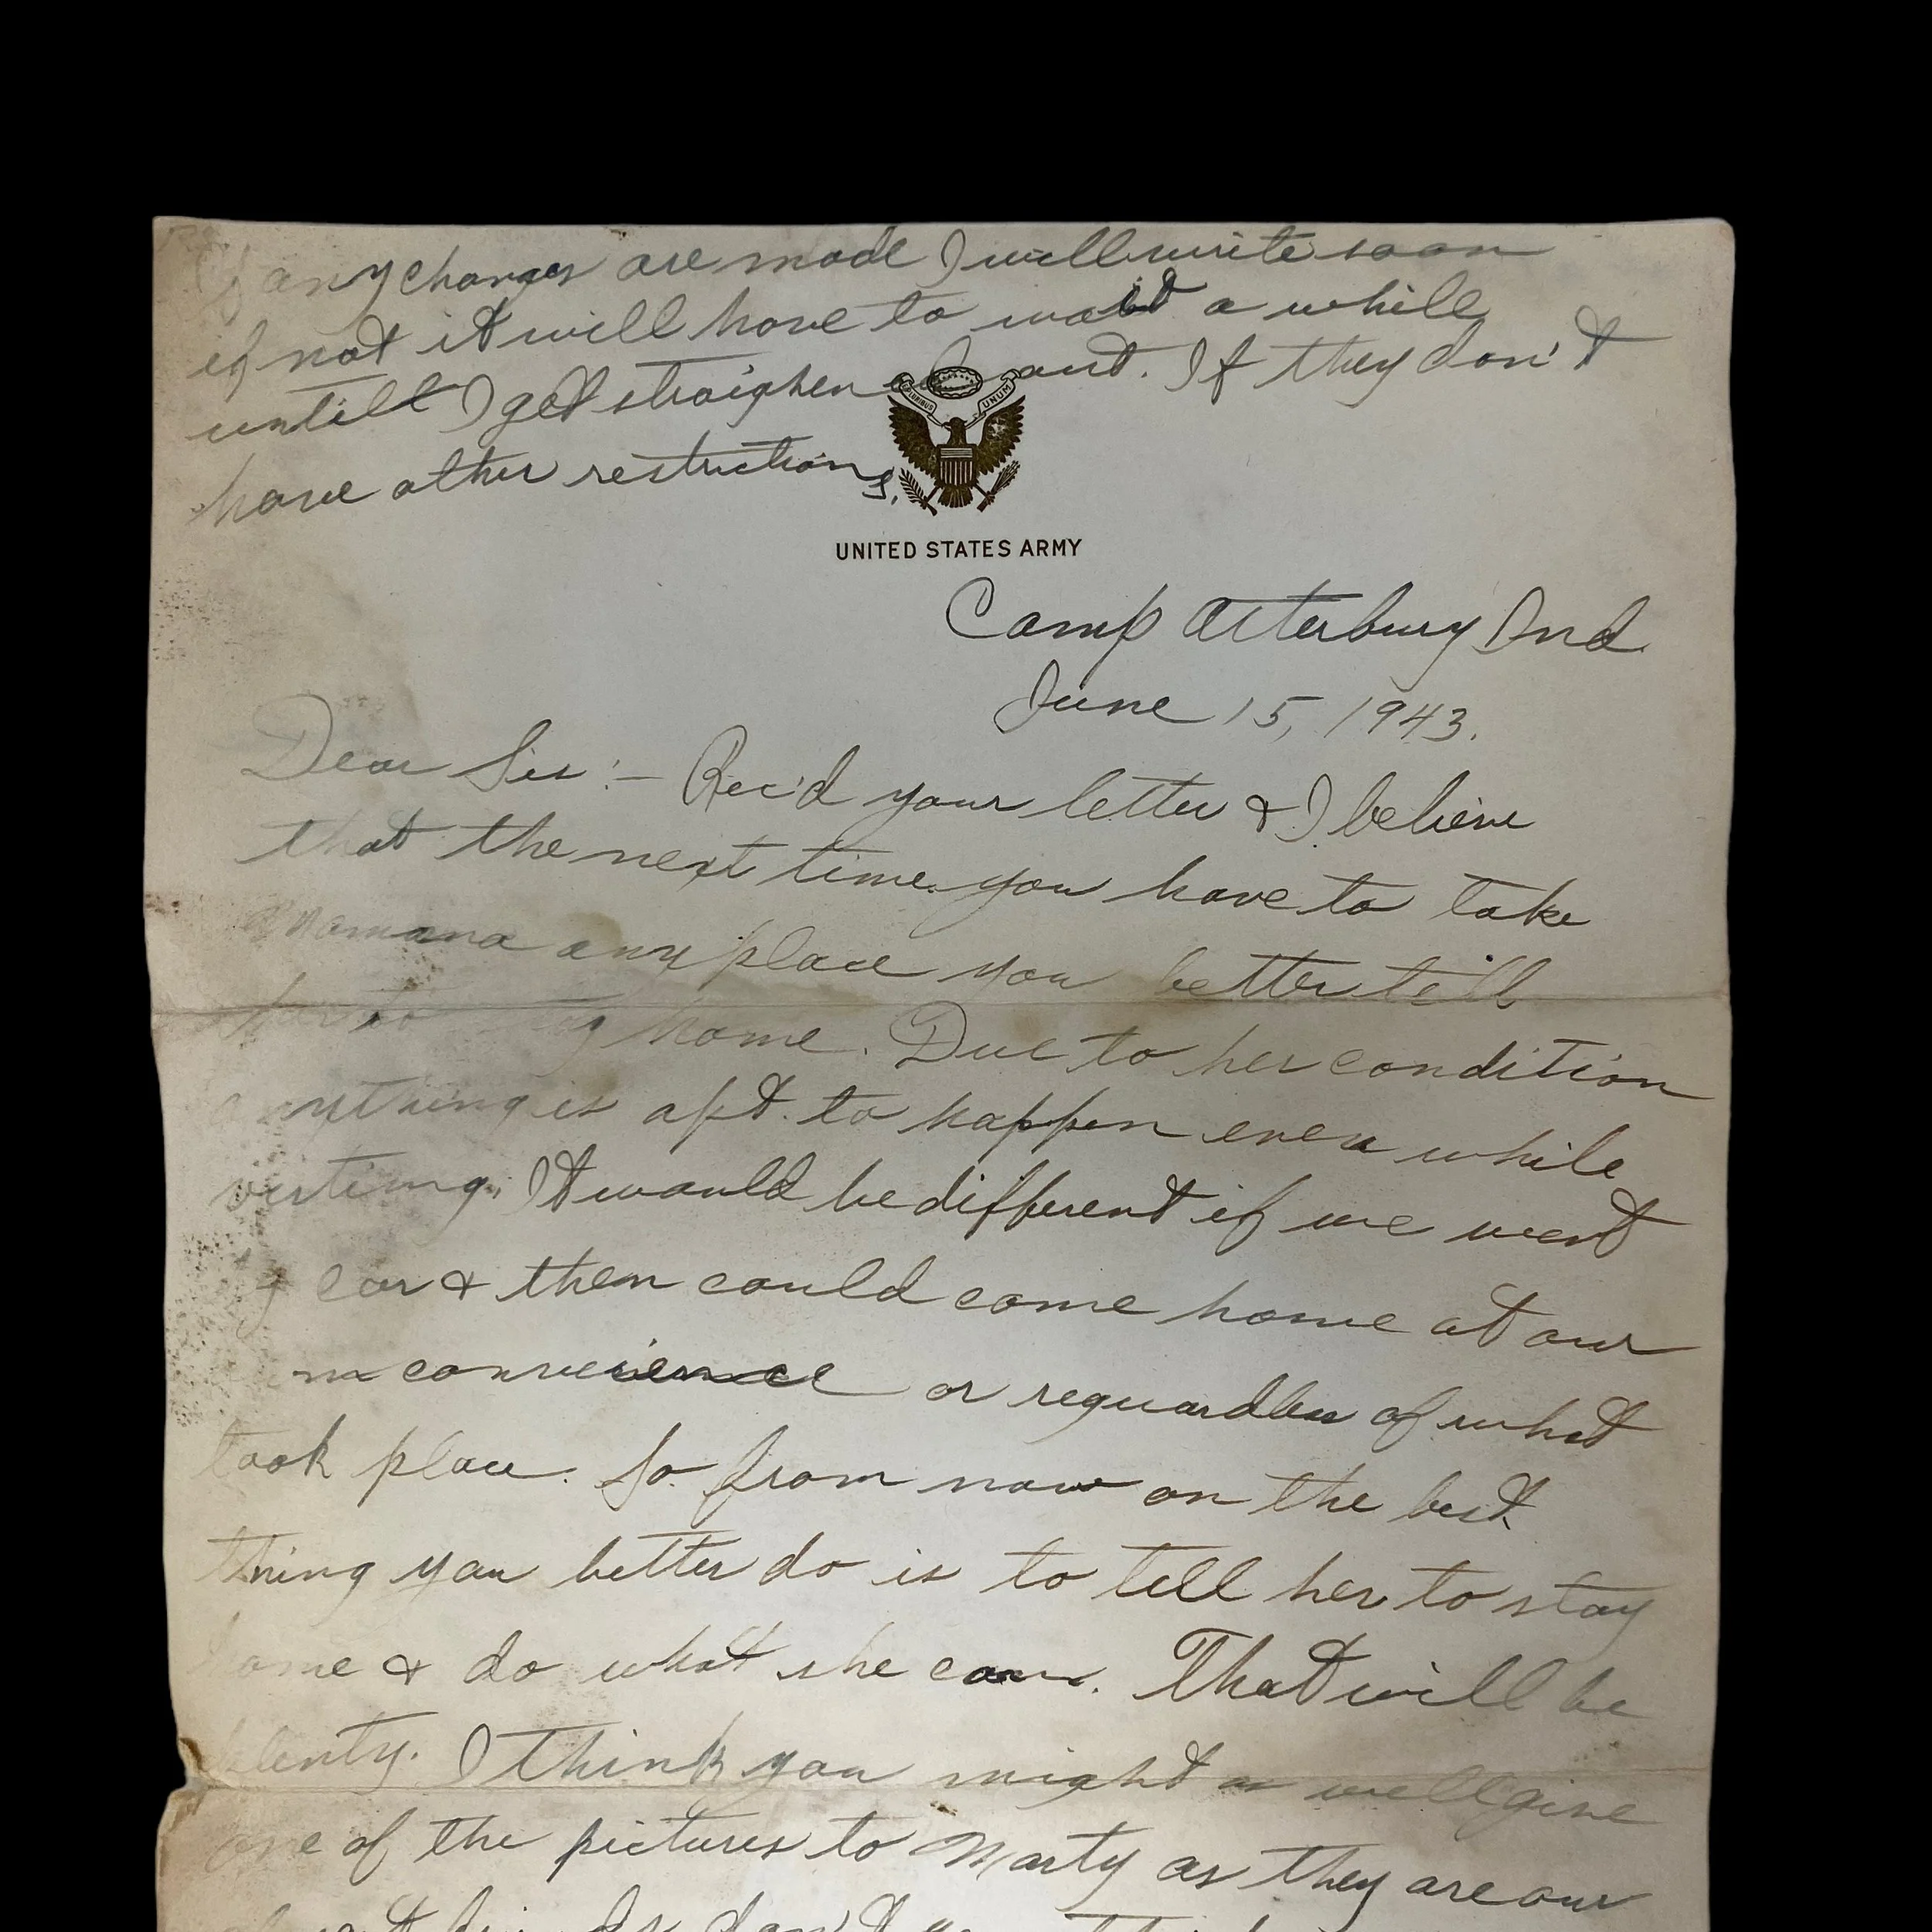 If any changes are made I will write soon
if not it will have to wait a while
untill I get straighened out. If they don't
have other restrictions.
PLURIBUS UNUM
UNITED STATES ARMY
Camp Atterbury Ind.
June 15, 1943.
Dear Sis:- Rec'd your letter & I believe
that the next time you have to take
Mamana any place you better tell
her to stay home. Due to her condition
anything is apt. to happen even while
visting. It would be different if we went
by car & then could come home at our
own convience or reguardless of what
took place. So from now on the best
thing you better do is to tell her to stay
home & do what she can. That will be
plenty. I think you might as well give
one of the pictures to Marty as they are our
friends don't you